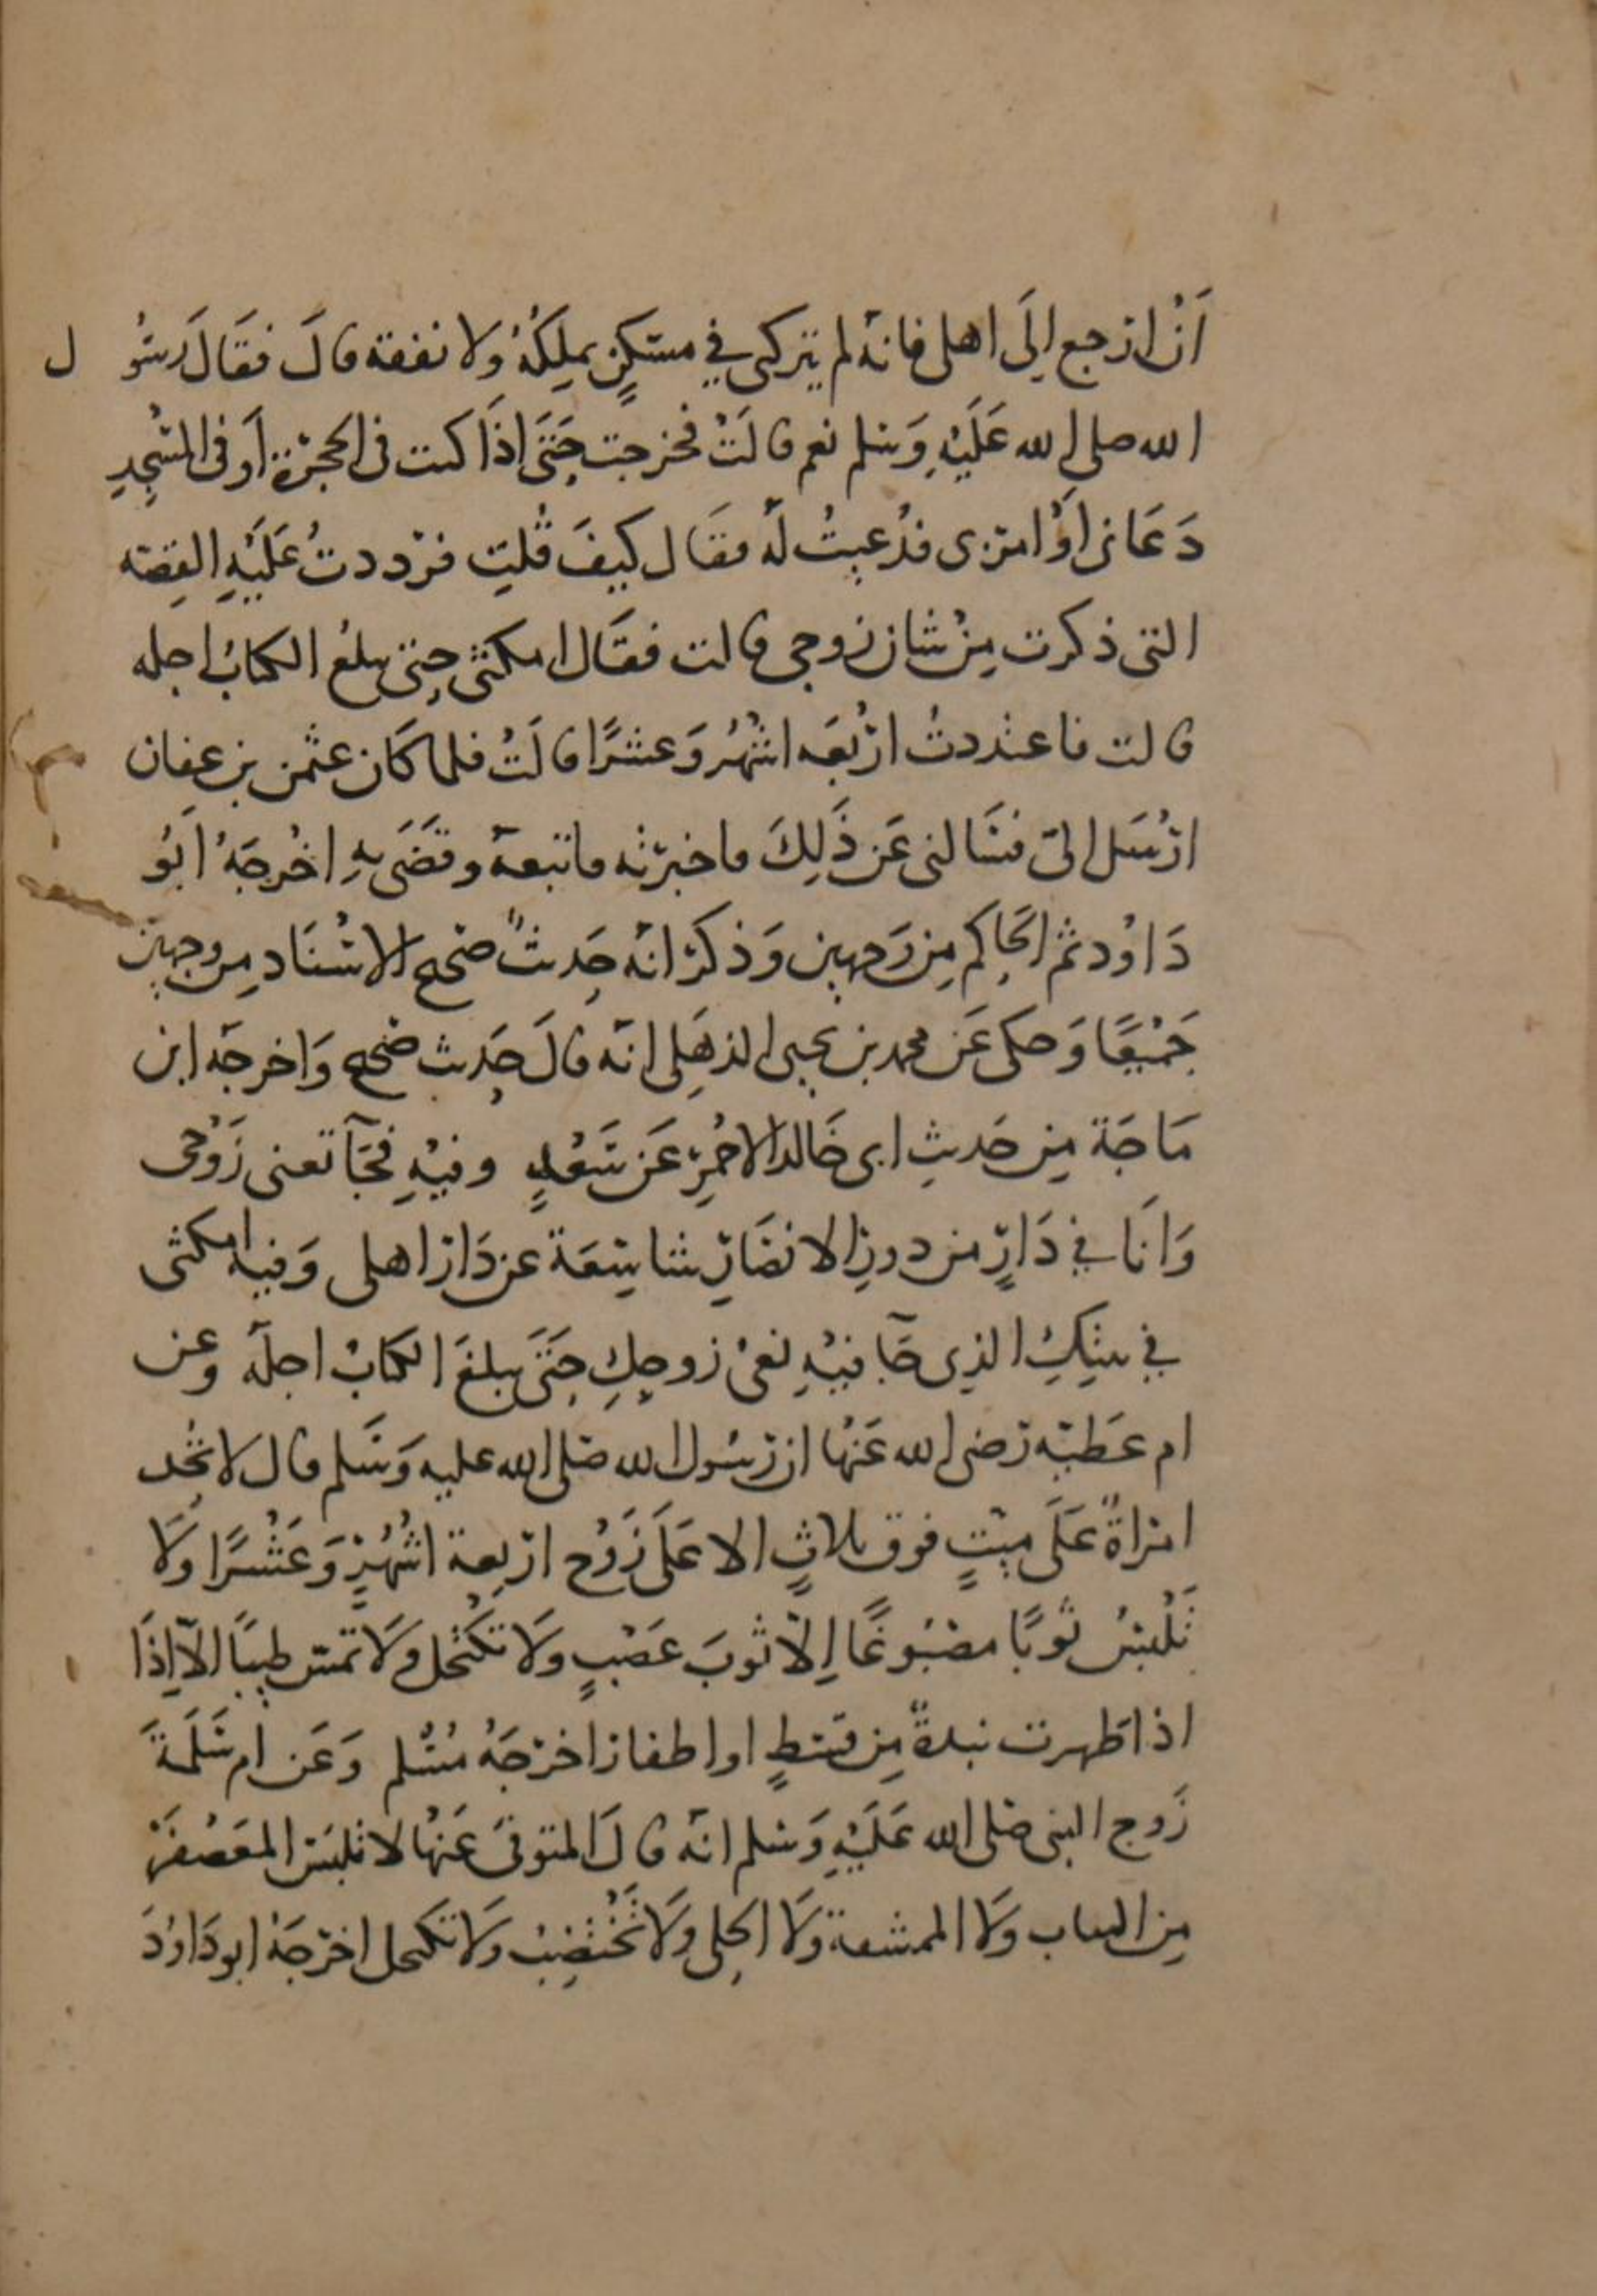 أَنْ ارجع إلَى اهلى فانهُ لم يتركنى في مسكنٍ يملِكُهُ ولا نفقة قالَ فقَالَ رسُو ل
الله صلى الله عَلَيْهِ وَسلم نعم قالَتْ فخرجت حَتَى اذَا كنت فى الحجرَة أو فى المسْجِدِ
دَعَانى اوْ امرنى فدُعِيتُ لهُ فقَال كيفَ قُلتِ فرددتُ عَلَيْهِ القِصّه
التى ذكرت مِنْ شان زوجى قالت فقَال امكثى حتى يبلغ الكتابُ اجله
قالت فاعتددتُ اربَعَه اشهُر وَعشرًا قالَتْ فلما كَان عثمن بن عفان
ارْسَل الىّ فسَالنى عَن ذَلِكَ فاخبرته فاتبعهُ وقضَى بهِ اخْرجَهُ ابُو
دَاوُد ثم الحَاكم مِن وَجهين وَذكرَ انهُ حَدِيثٌ صَحيح الاسْنَاد من وجهين
جَمْيعًا وَحكى عَن محمد بن يحيى الذهَلِى انهُ قالَ حَدِيث صَحيح وَاخرجَه ابن
مَاجَة مِن حَديثِ ابى خَالد الاحْمَرِ عَن سَعْدٍ وفيْهِ فجَآ تعنى زَوْجى
وَانَا في دَارٍ من دورِ الانصَارِ شاسِعَة عن دَار اهلى وَفيه امكثى
في بيتِكِ الذِى جَآ فيْهِ نعىْ زوجِكِ حَتَى يبلغَ الكتابُ اجلهُ وعن
ام عَطيّه رَضى الله عَنْها ان رسُول الله صَلى الله عليه وَسَلم قال لا تُحِد
امرَاةٌ عَلَى ميّتٍ فوق ثلاثٍ الا عَلَى زَوْج اربَعة اشْهُرٍ وَعَشْرًا وَلَا
تَلْبسُ ثوبًا مصْبُوغًا اِلّا ثوبَ عَصْبٍ وَلَا تكْتحل وَلَا تمسّ طيبًا الآ اِذَا
اذا طَهرت نبذةً مِن قسْطٍ او اظفار اخرَجَهُ مُسْلم وَعَن ام سَلَمَة
زَوج النبى صَلى الله عَلَيْهِ وَسلم انهُ قالَ المتوفى عَنهَا لا تلبَسُ المعَصْفَرَ
مِن الثياب وَلَا الممشقة وَلَا الحِلى وَلَا تَخْتضِبُ وَلَا تكتحل اخرَجَهُ ابو دَاوُدَ